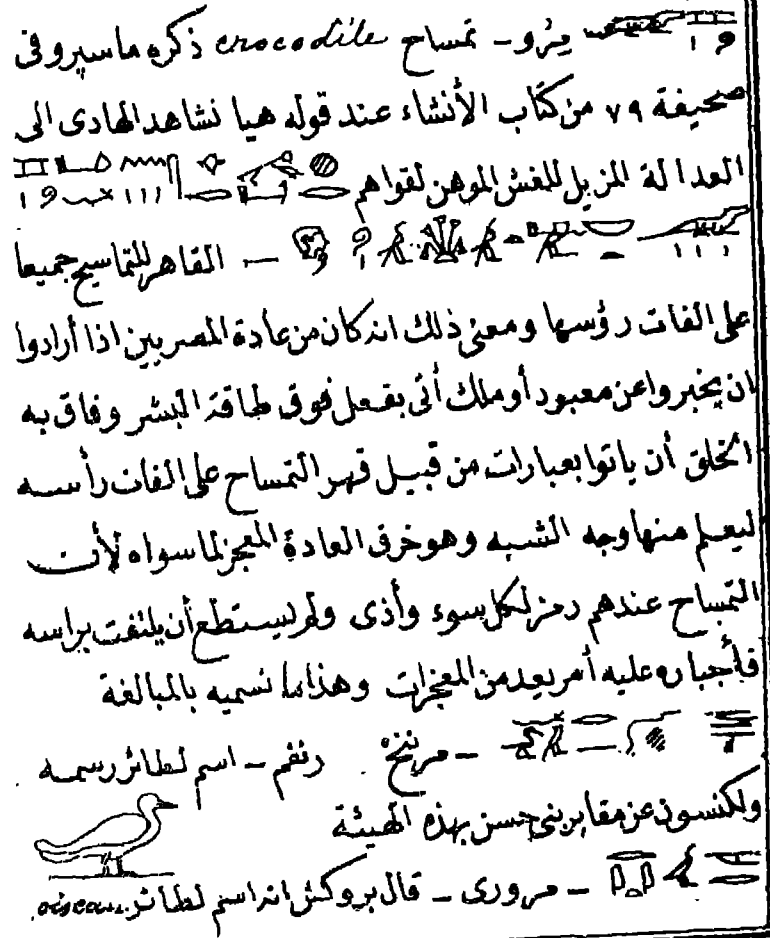 مزو - تمساح crocodile ذكره ماسپرو فى
صحيفة ٧٩ من كتاب الأنشاء عند قوله هيا نشاهد الهادى الى
العدالة المزيل للغش الموهن لقواهم
— القاهر للتماسيح جميعا
على الفات رؤسها ومعنى ذلك انه كان من عادة المصريين اذا أرادوا
ان يخبروا عن معبود أو ملك أتى بفعل فوق طاقة البشر وفاق به
الخلق أن ياتوا بعبارات من قبيل قهر التمساح على الفات رأسه
ليعلم منها وجه الشبه وهو خرق العادة المعجز لما سواه لأن
التمساح عندهم رمز لكل سوء وأذى ولم يستطع أن يلتفت براسه
فأجباره عليه أمر يعد من المعجزات وهذا ما نسميه بالمبالغة
- اسم لطائر رسمه
ولكنسون عن مقابر بنى حسن بهذه الهيئة
- مرورى - قال بروكش انه اسم لطائر oiseau.